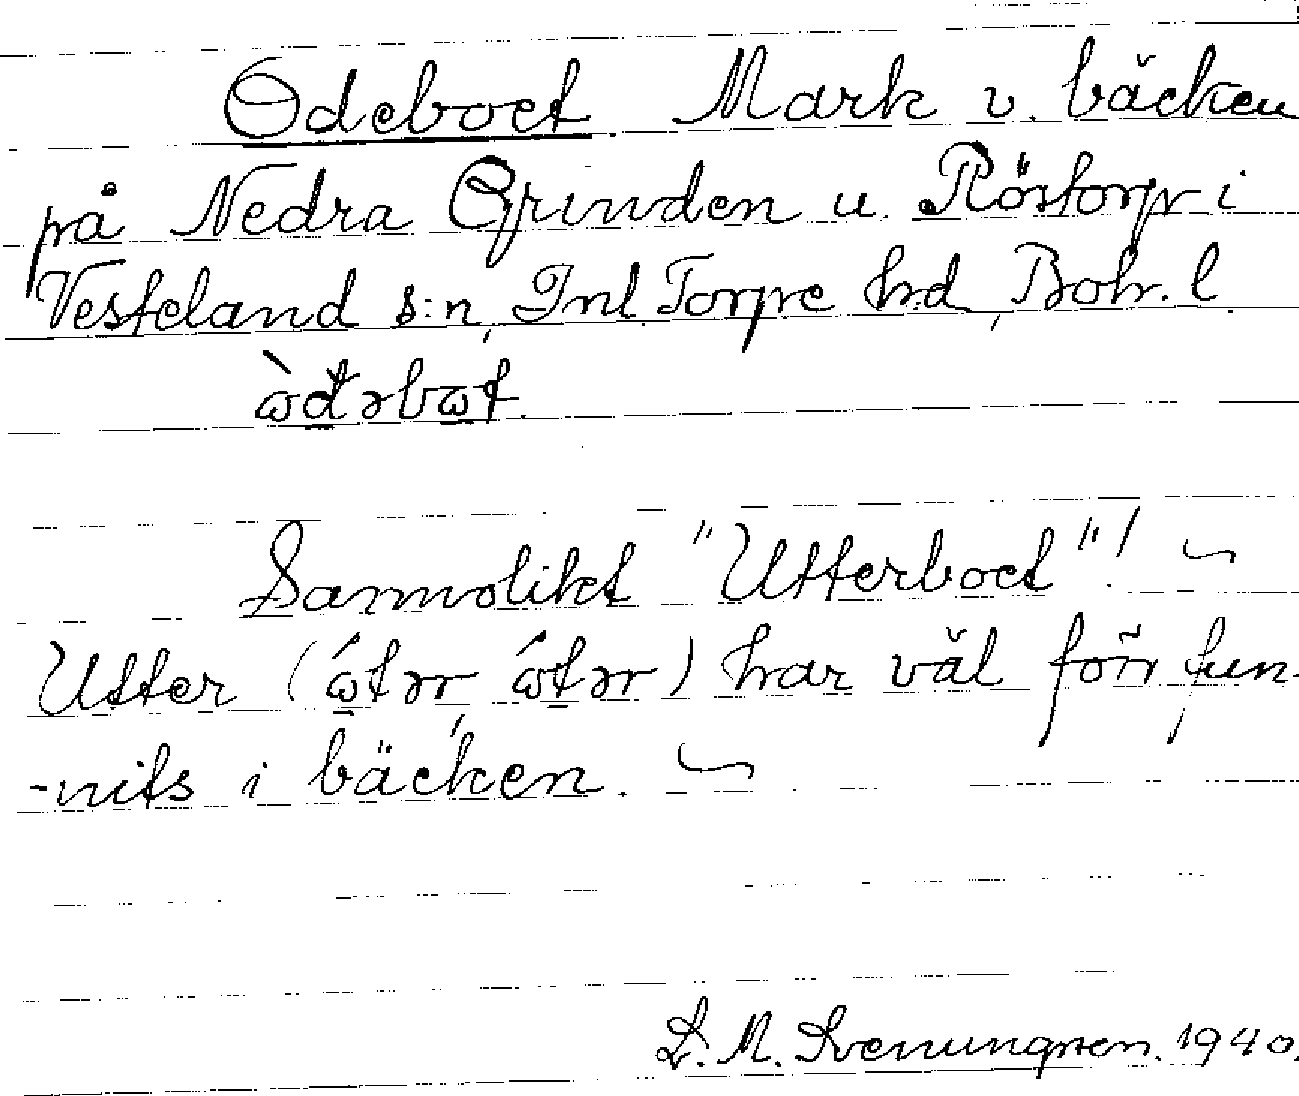 Odeboet. Mark v. bäcken
på Nedra Grinden u. Röstorp i
Vesteland s:n, Inl Torpe hd, Boh. l.
Sannolikt "Utterboet"! ~
Utter ( ) har väl förr fun-
-nits i bäcken. ~
L. M. Svenungsson. 1940.